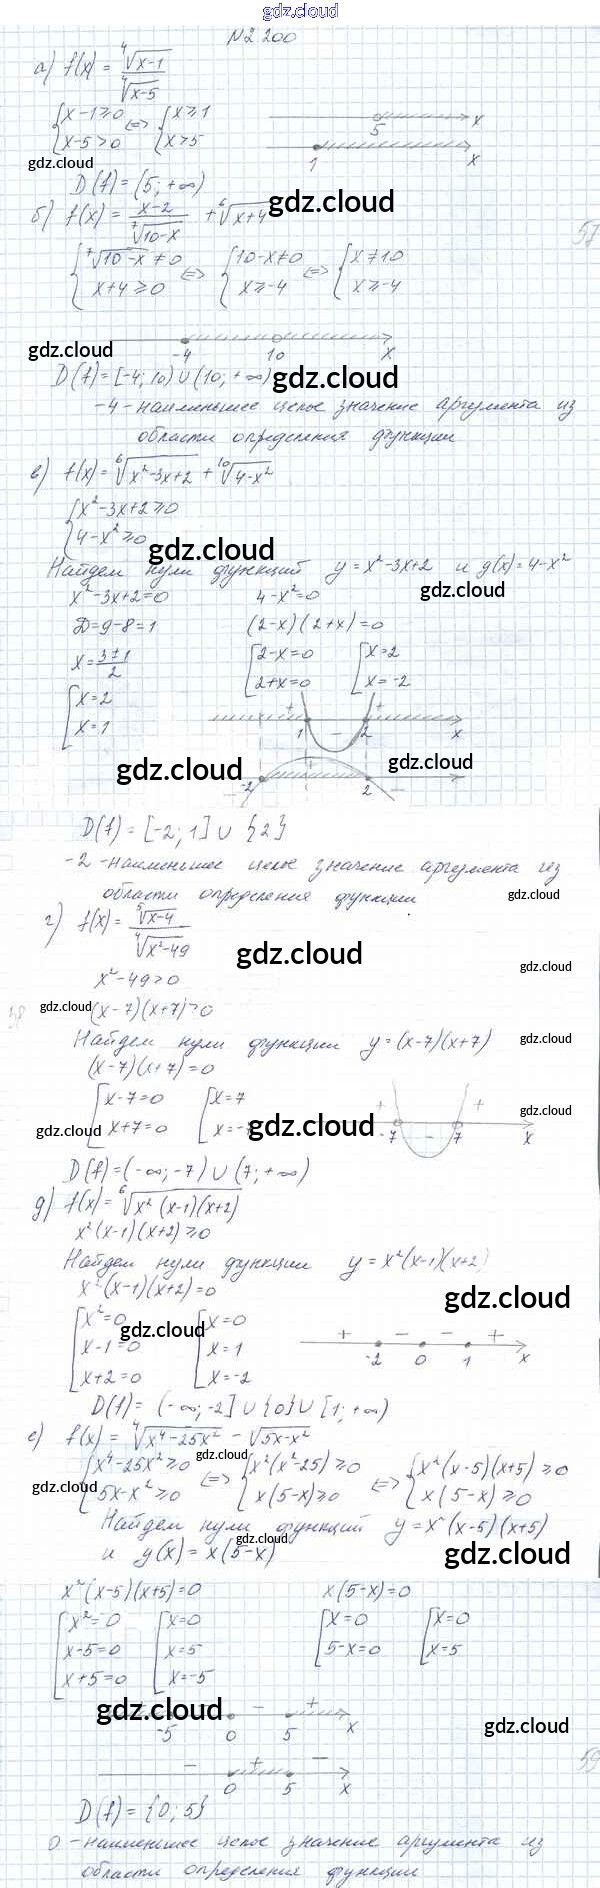 gdz.cloud
№2 200
а) f(x) = ⁴√(x-1) / ⁴√(x-5)
{x-1≥0 <=> {x≥1
{x-5>0 {x>5
5 x
1 x
gdz.cloud
D(f) = (5; +∞)
gdz.cloud
б) f(x) = (x-2) / ⁷√(10-x) + ⁶√(x+4)
57
{⁷√(10-x) ≠ 0 <=> {10-x≠0 <=> {x≠10
{x+4≥0 {x≥-4 {x≥-4
gdz.cloud
-4 10 x
D(f) = [-4; 10) ∪ (10; +∞)
gdz.cloud
-4 - наименьшее целое значение аргумента из
области определения функции
в) f(x) = ⁶√(x²-3x+2) + ¹⁰√(4-x²)
{x²-3x+2≥0
{4-x²≥0
gdz.cloud
Найдем нули функций y = x²-3x+2 и g(x) = 4-x²
gdz.cloud
x²-3x+2=0 4-x²=0
D=9-8=1 (2-x)(2+x)=0
x = (3±1)/2 [2-x=0 [x=2
[2+x=0 [x=-2
[x=2
[x=1
+ - +
1 2 x
gdz.cloud
gdz.cloud
- + -
-2 2
D(f) = [-2; 1] ∪ {2}
-2 - наименьшее целое значение аргумента из
области определения функции
gdz.cloud
г) f(x) = ⁵√(x-4) / ⁴√(x²-49)
gdz.cloud
gdz.cloud
x²-49>0
gdz.cloud
58
(x-7)(x+7)>0
Найдем нули функции y = (x-7)(x+7)
gdz.cloud
(x-7)(x+7)=0
[x-7=0 [x=7
[x+7=0 [x=-7
gdz.cloud
gdz.cloud
gdz.cloud
+ - +
-7 7 x
D(f) = (-∞; -7) ∪ (7; +∞)
д) f(x) = ⁶√(x²(x-1)(x+2))
x²(x-1)(x+2)≥0
Найдем нули функции y = x²(x-1)(x+2)
x²(x-1)(x+2)=0
gdz.cloud
[x²=0 [x=0
gdz.cloud
[x-1=0 [x=1
[x+2=0 [x=-2
+ - - +
-2 0 1 x
D(f) = (-∞; -2] ∪ {0} ∪ [1; +∞)
е) f(x) = ⁴√(x⁴-25x²) - √(5x-x²)
gdz.cloud
{x⁴-25x²≥0 <=> {x²(x²-25)≥0 <=> {x²(x-5)(x+5)≥0
{5x-x²≥0 {x(5-x)≥0 {x(5-x)≥0
gdz.cloud
Найдем нули функций y = x²(x-5)(x+5)
gdz.cloud
и g(x) = x(5-x)
gdz.cloud
x²(x-5)(x+5)=0 x(5-x)=0
[x²=0 [x=0 [x=0 [x=0
[x-5=0 [x=5 [5-x=0 [x=5
[x+5=0 [x=-5
gdz.cloud
gdz.cloud
- +
-5 0 5 x
59
- + -
0 5 x
D(f) = {0; 5}
0 - наименьшее целое значение аргумента из
области определения функции